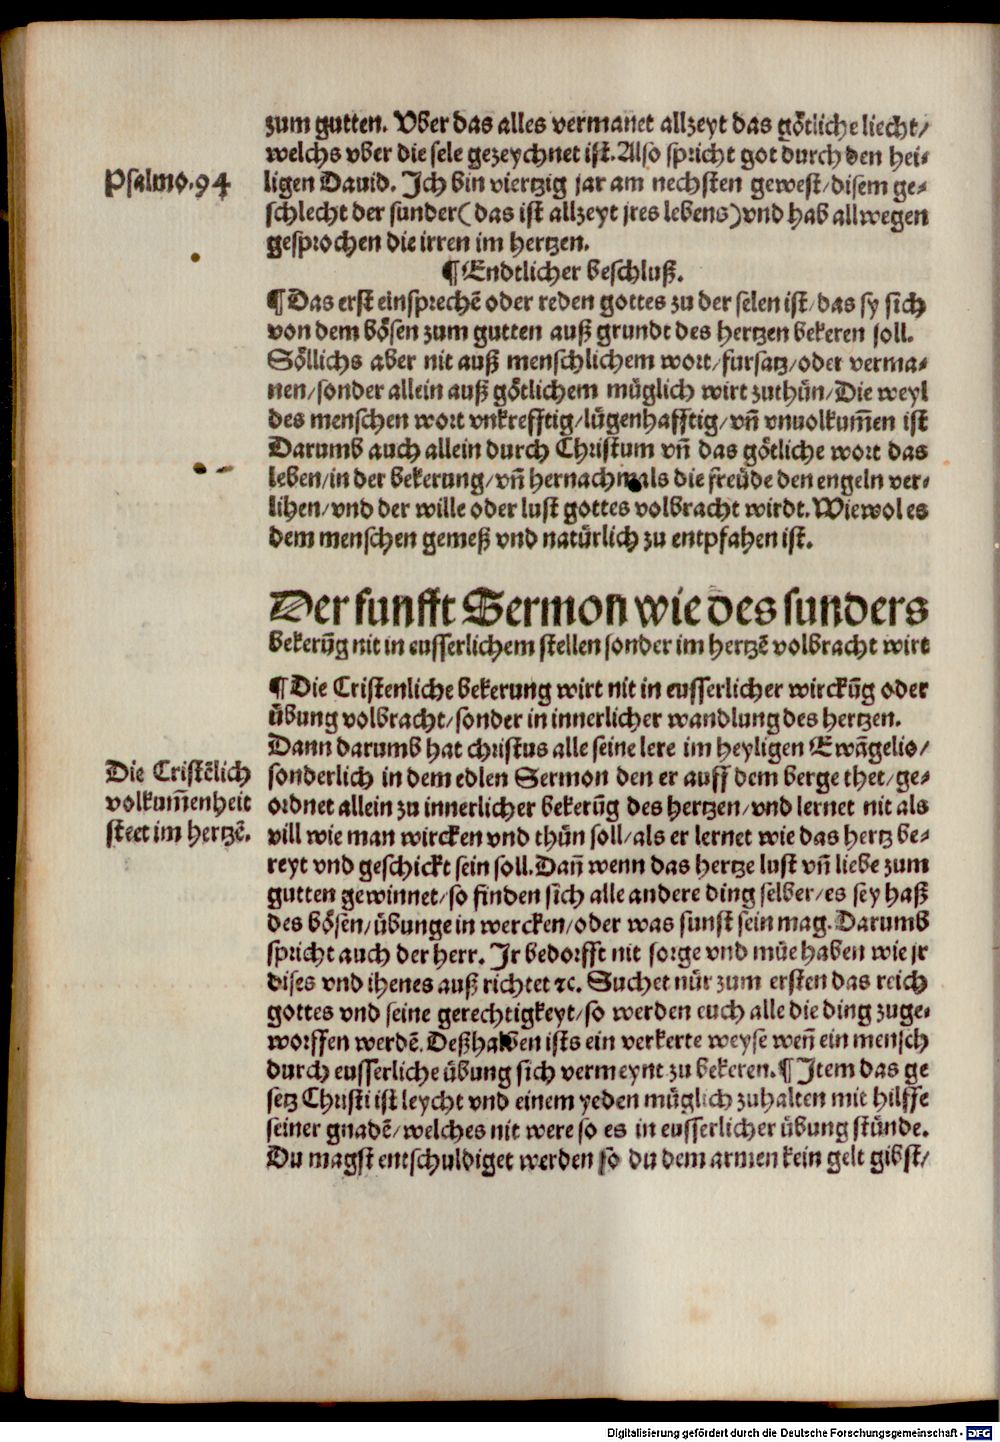 zum gutten. Vber das alles vermanet allzeyt das götliche liecht/
welchs vber die sele gezeychnet ist. Also spricht got durch den hei-
Psalmo. 94
ligen Dauid. Ich bin viertzig jar am nechsten gewest/disem ge-
schlecht der sunder (das ist allzeyt jres lebens) vnd hab allwegen
gesprochen die irren im hertzen.
¶ Endtlicher beschluß.
¶ Das erst einsprechē oder reden gottes zu der selen ist/das sy sich
von dem bösen zum gutten auß grundt des hertzen bekeren soll.
Söllichs aber nit auß menschlichem wort/fursatz/oder verma-
nen/sonder allein auß götlichem müglich wirt zuthůn/Die weyl
des menschen wort vnkrefftig/lügenhafftig/vñ vnuolkum̄en ist
Darumb auch allein durch Christum vñ das götliche wort das
leben/in der bekerung/vñ hernachmals die freüde den engeln ver-
lihen/vnd der wille oder lust gottes volbracht wirdt. Wiewol es
dem menschen gemeß vnd natürlich zu entpfahen ist.
Der funfft Sermon wie des sunders
bekerūg nit in eusserlichem stellen sonder im hertzē volbracht wirt
¶ Die Cristenliche bekerung wirt nit in eusserlicher wirckūg oder
übung volbracht/sonder in innerlicher wandlung des hertzen.
Dann darumb hat christus alle seine lere im heyligen Ewāgelio/
Die Cristēlich
volkum̄enheit
steet im hertzē.
sonderlich in dem edlen Sermon den er auff dem berge thet/ge-
ordnet allein zu innerlicher bekerūg des hertzen/vnd lernet nit als
vill wie man wircken vnd thůn soll/als er lernet wie das hertz be-
reyt vnd geschickt sein soll. Dañ wenn das hertze lust vñ liebe zum
gutten gewinnet/so finden sich alle andere ding selber/es sey haß
des bösen/übunge in wercken/oder was sunst sein mag. Darumb
spricht auch der herr. Ir bedorfft nit sorge vnd müe haben wie jr
dises vnd ihenes auß richtet ꝛc. Suchet nür zum ersten das reich
gottes vnd seine gerechtigkeyt/so werden euch alle die ding zuge-
worffen werdē. Deßhalben ists ein verkerte weyse weñ ein mensch
durch eusserliche übung sich vermeynt zu bekeren. ¶ Item das ge
setz Christi ist leycht vnd einem yeden müglich zuhalten mit hilffe
seiner gnadē/welches nit were so es in eusserlicher übung stünde.
Du magst entschuldiget werden so du dem armen kein gelt gibst/
Digitalisierung gefördert durch die Deutsche Forschungsgemeinschaft - DFG